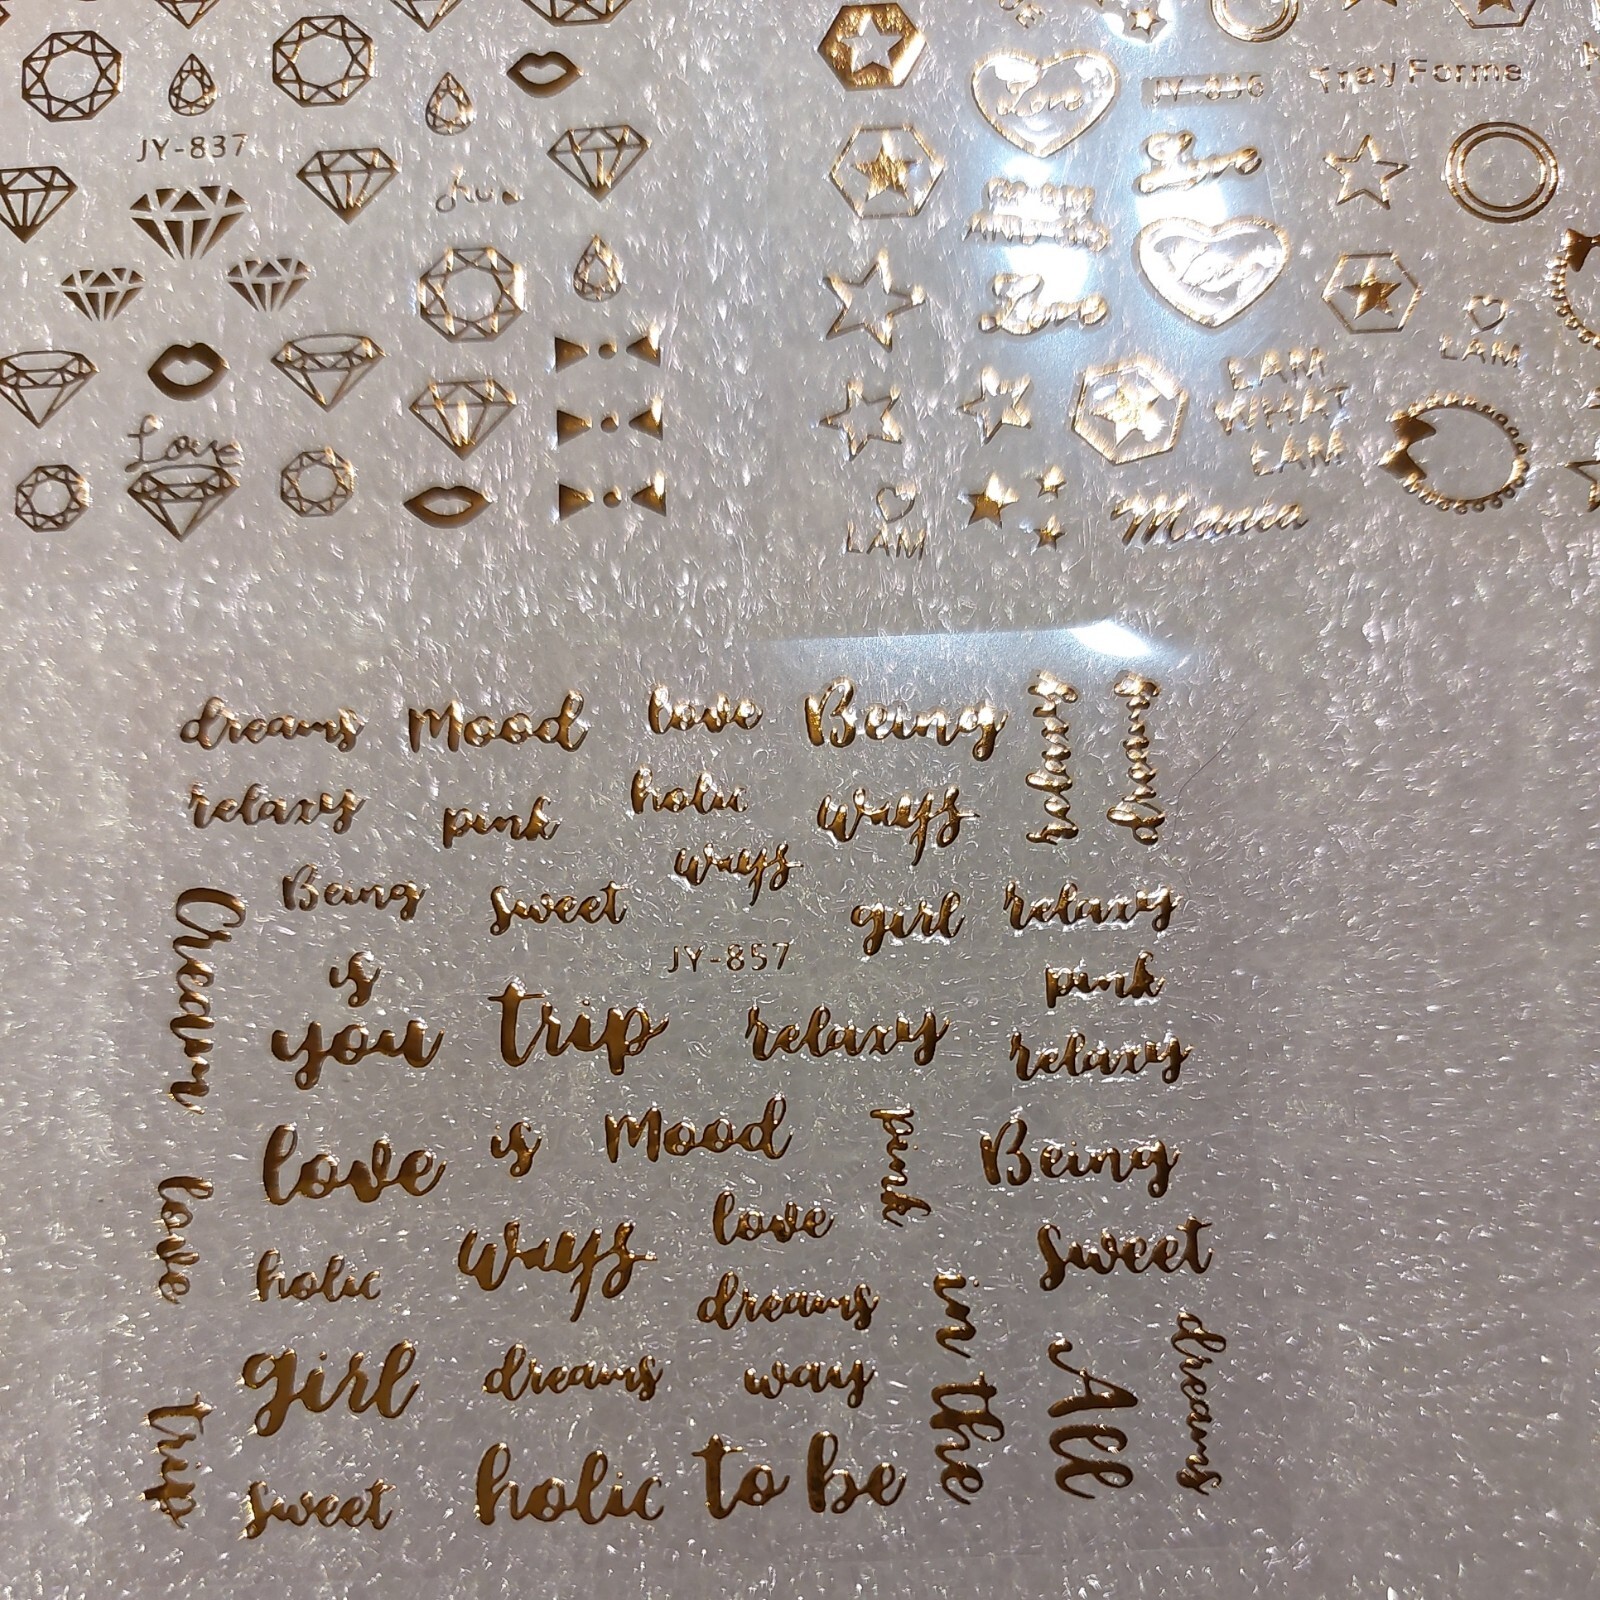 JY-837
Love
JY-836
Tray Forms
Love
Love
Love
Love
LAM
LAM
WHAT
LAM
LAM
dreams Mood love Being
relaxy pink holic ways
ways
Being sweet girl relaxy
JY-857
Cream
is
pink
you trip relaxy relaxy
love is Mood pink Being
love
love
holic ways sweet
dreams
in the
All
dreams
girl dreams way
trip
sweet holic to be